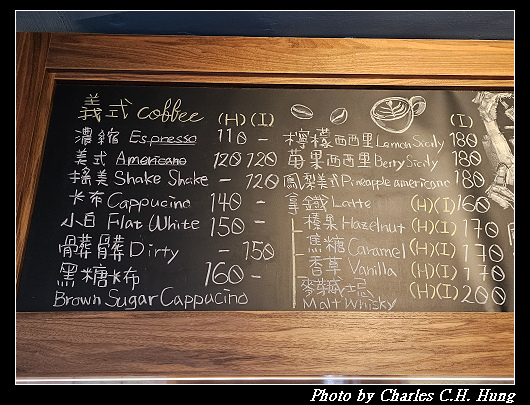 義式 coffee (H) (I)
濃縮 Espresso 110 -
美式 Americano 120 120
搖美 Shake Shake - 120
卡布 Cappucino 140 -
小白 Flat White 150 -
髒髒 Dirty - 150
黑糖卡布 160 -
Brown Sugar Cappucino
(I)
檸檬西西里 Lemon Sicily 180
莓果西西里 Berry Sicily 180
鳳梨美式 Pineapple americano 180
拿鐵 Latte (H)(I) 160
榛果 Hazelnut (H)(I) 170
焦糖 Caramel (H)(I) 170
香草 Vanilla (H)(I) 170
麥芽威士忌 (H)(I) 200
Malt Whisky
Photo by Charles C.H. Hung